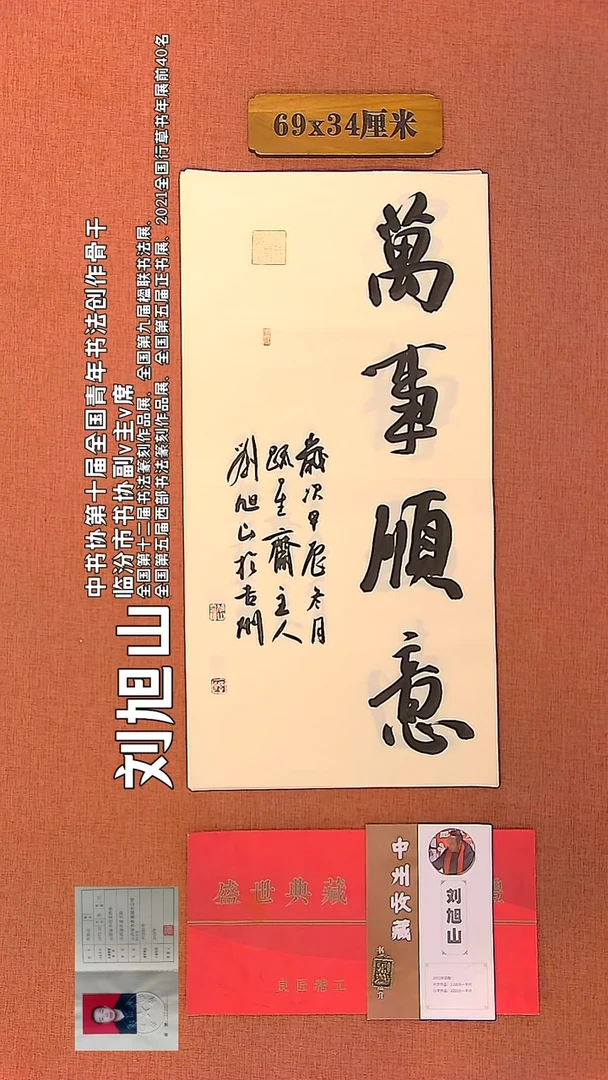 69x34厘米
萬事順意
歲次甲辰冬月
踈星齋主人
劉旭山於吉州
刘旭山
中书协第十届全国青年书法创作骨干
临汾市书协副v主v席
全国第十二届书法篆刻作品展、全国第九届楹联书法展、
全国第五届西部书法篆刻作品展、全国第五届正书展、2021全国行草书年展前40名
盛世典藏
良匠精工
中州收藏
刘旭山